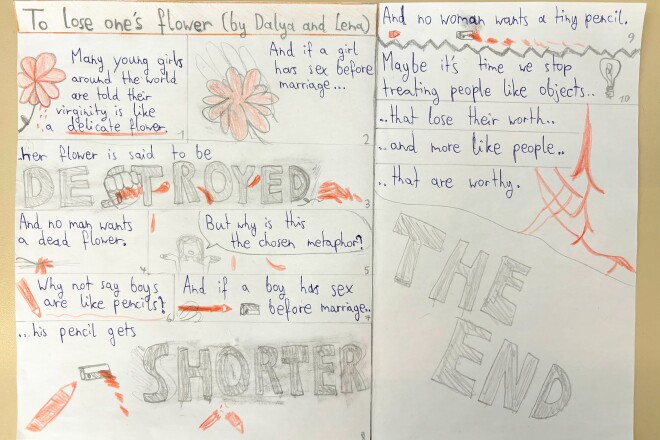 To lose one's flower (by Dalya and Lena)
Many young girls
around the world
are told their
virginity is like
a delicate flower.
1
And if a girl
has sex before
marriage...
2
..her flower is said to be
DESTROYED
3
And no man wants
a dead flower.
4
But why is this
the chosen metaphor?
5
Why not say boys
are like pencils?
6
And if a boy has sex
before marriage..
7
...his pencil gets
SHORTER
8
And no woman wants a tiny pencil.
9
Maybe it's time we stop
treating people like objects..
10
..that lose their worth..
..and more like people..
..that are worthy.
THE
END